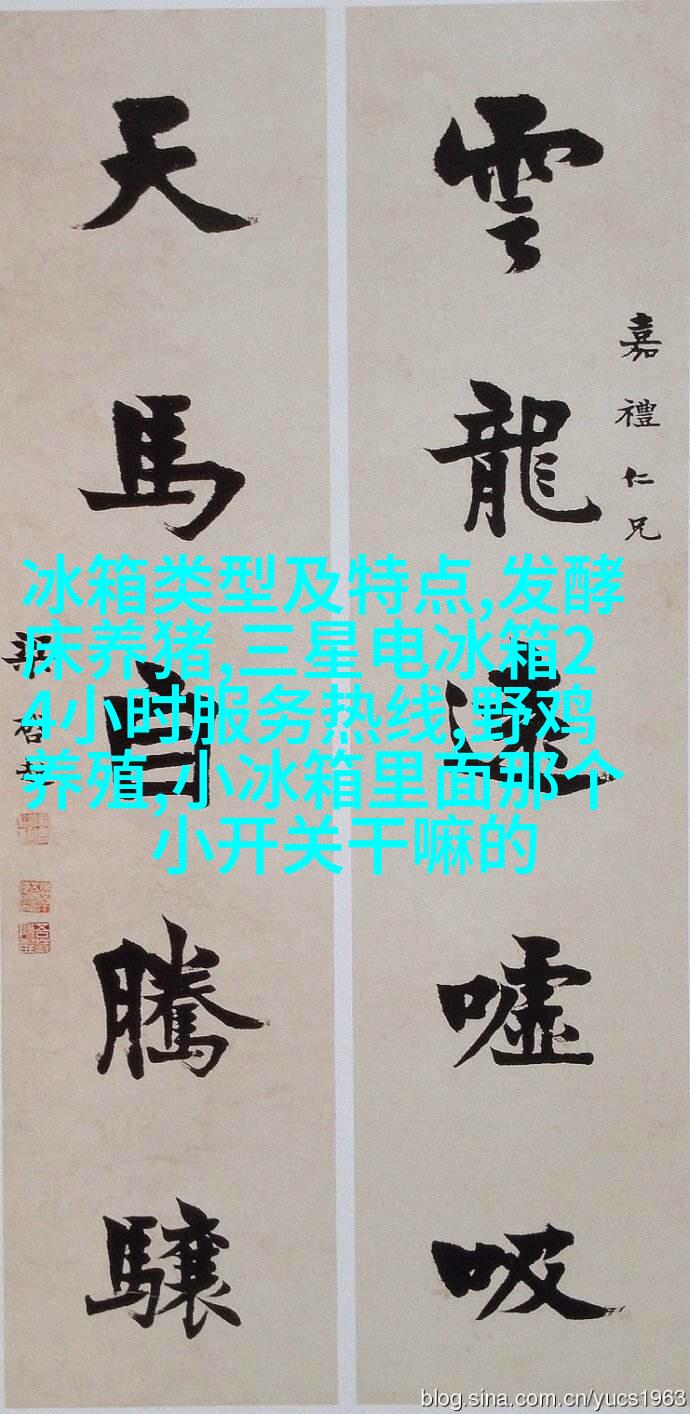 嘉禮仁兄
雲龍遠噓吸
天馬自騰驤
冰箱类型及特点,发酵
床养猪,三星电冰箱2
4小时服务热线,野鸡
养殖,小冰箱里面那个
小开关干嘛的
blog.sina.com.cn/yucs1963